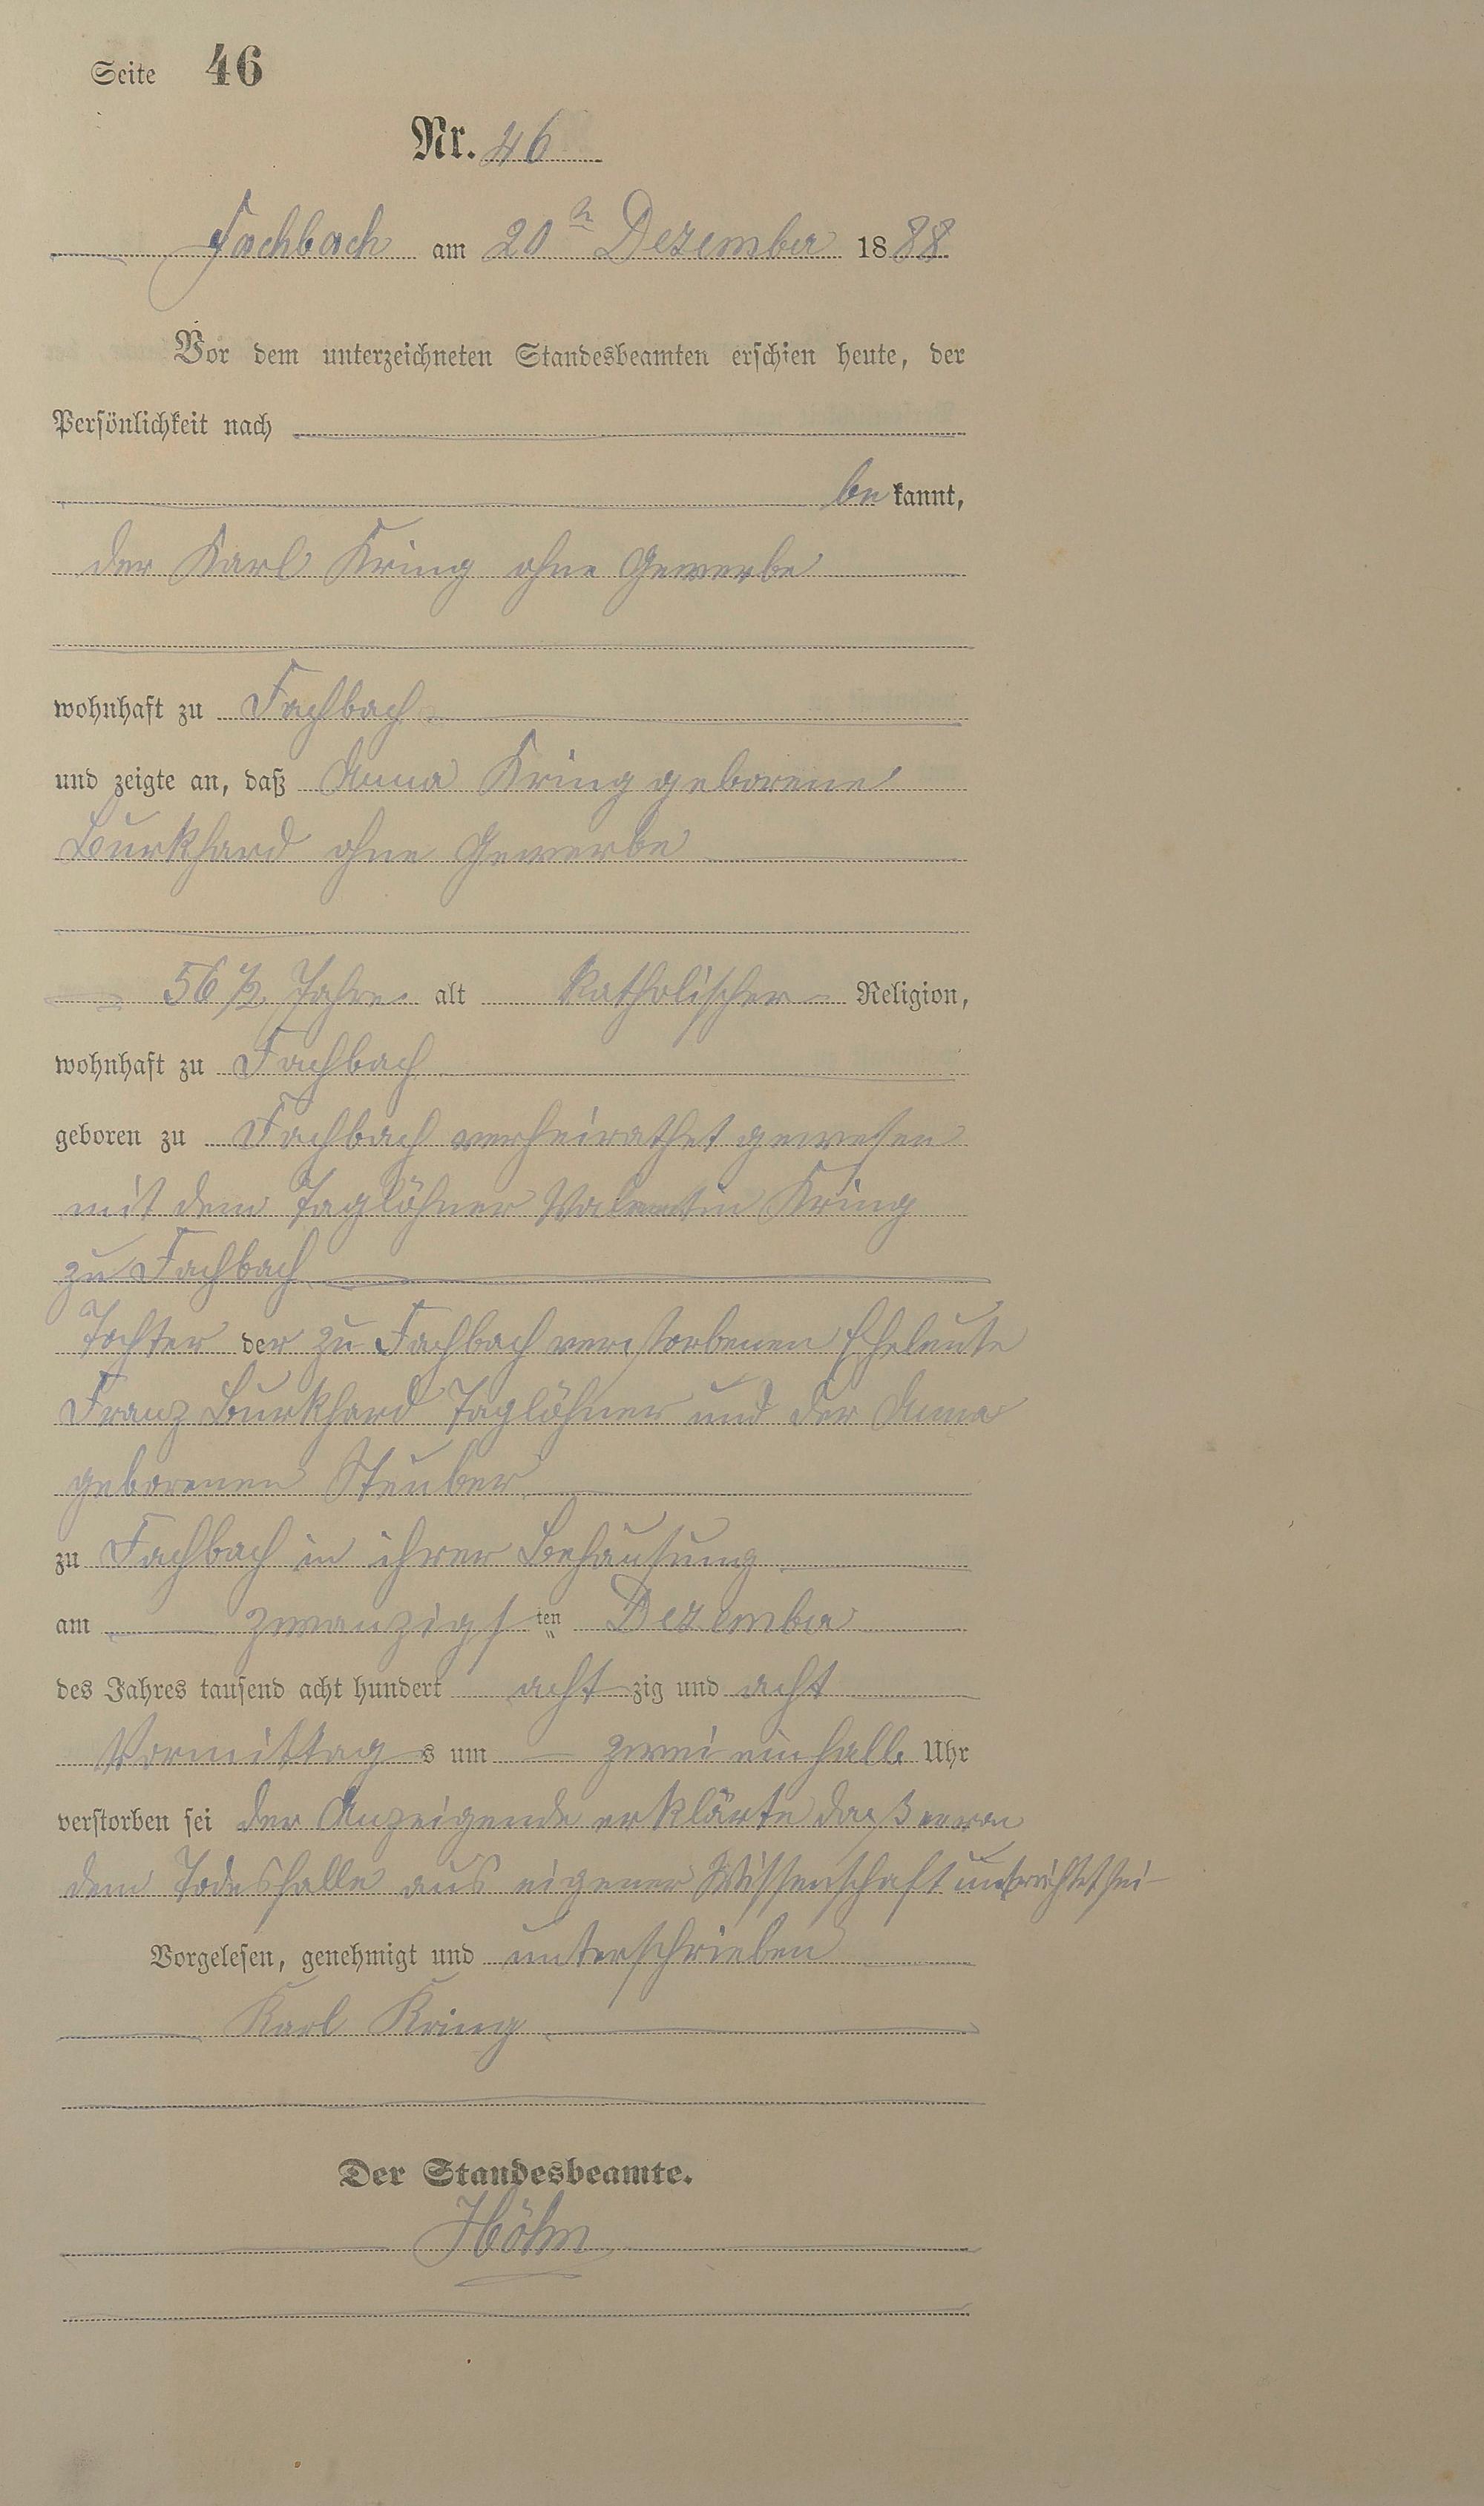 Seite 46
Nr. 46
Fachbach am 20n Dezember 1888
Vor dem unterzeichneten Standesbeamten erschien heute, der
Persönlichkeit nach
be kannt,
der Karl Kring ohne Gewerbe
wohnhaft zu Fachbach
und zeigte an, daß Anna Kring geborene
Burkhard ohne Gewerbe
56 1/2 Jahre alt katholischer Religion,
wohnhaft zu Fachbach
geboren zu Fachbach verheirathet gewesen
mit dem Taglöhner Valentin Kring
zu Fachbach
Tochter der zu Fachbach verstorbenen Eheleute
Franz Burkhard Taglöhner und der Anna
geborenen Steuber
zu Fachbach in ihrer Behausung
am zwanzigsten Dezember
des Jahres tausend acht hundert achtzig und acht
Vormittags um zwei einhalb Uhr
verstorben sei der Anzeigende erklärte daß er von
dem Todesfalle aus eigener Wissenschaft unterrichtet sei
Vorgelesen, genehmigt und unterschrieben
Karl Kring
Der Standesbeamte.
Höhn